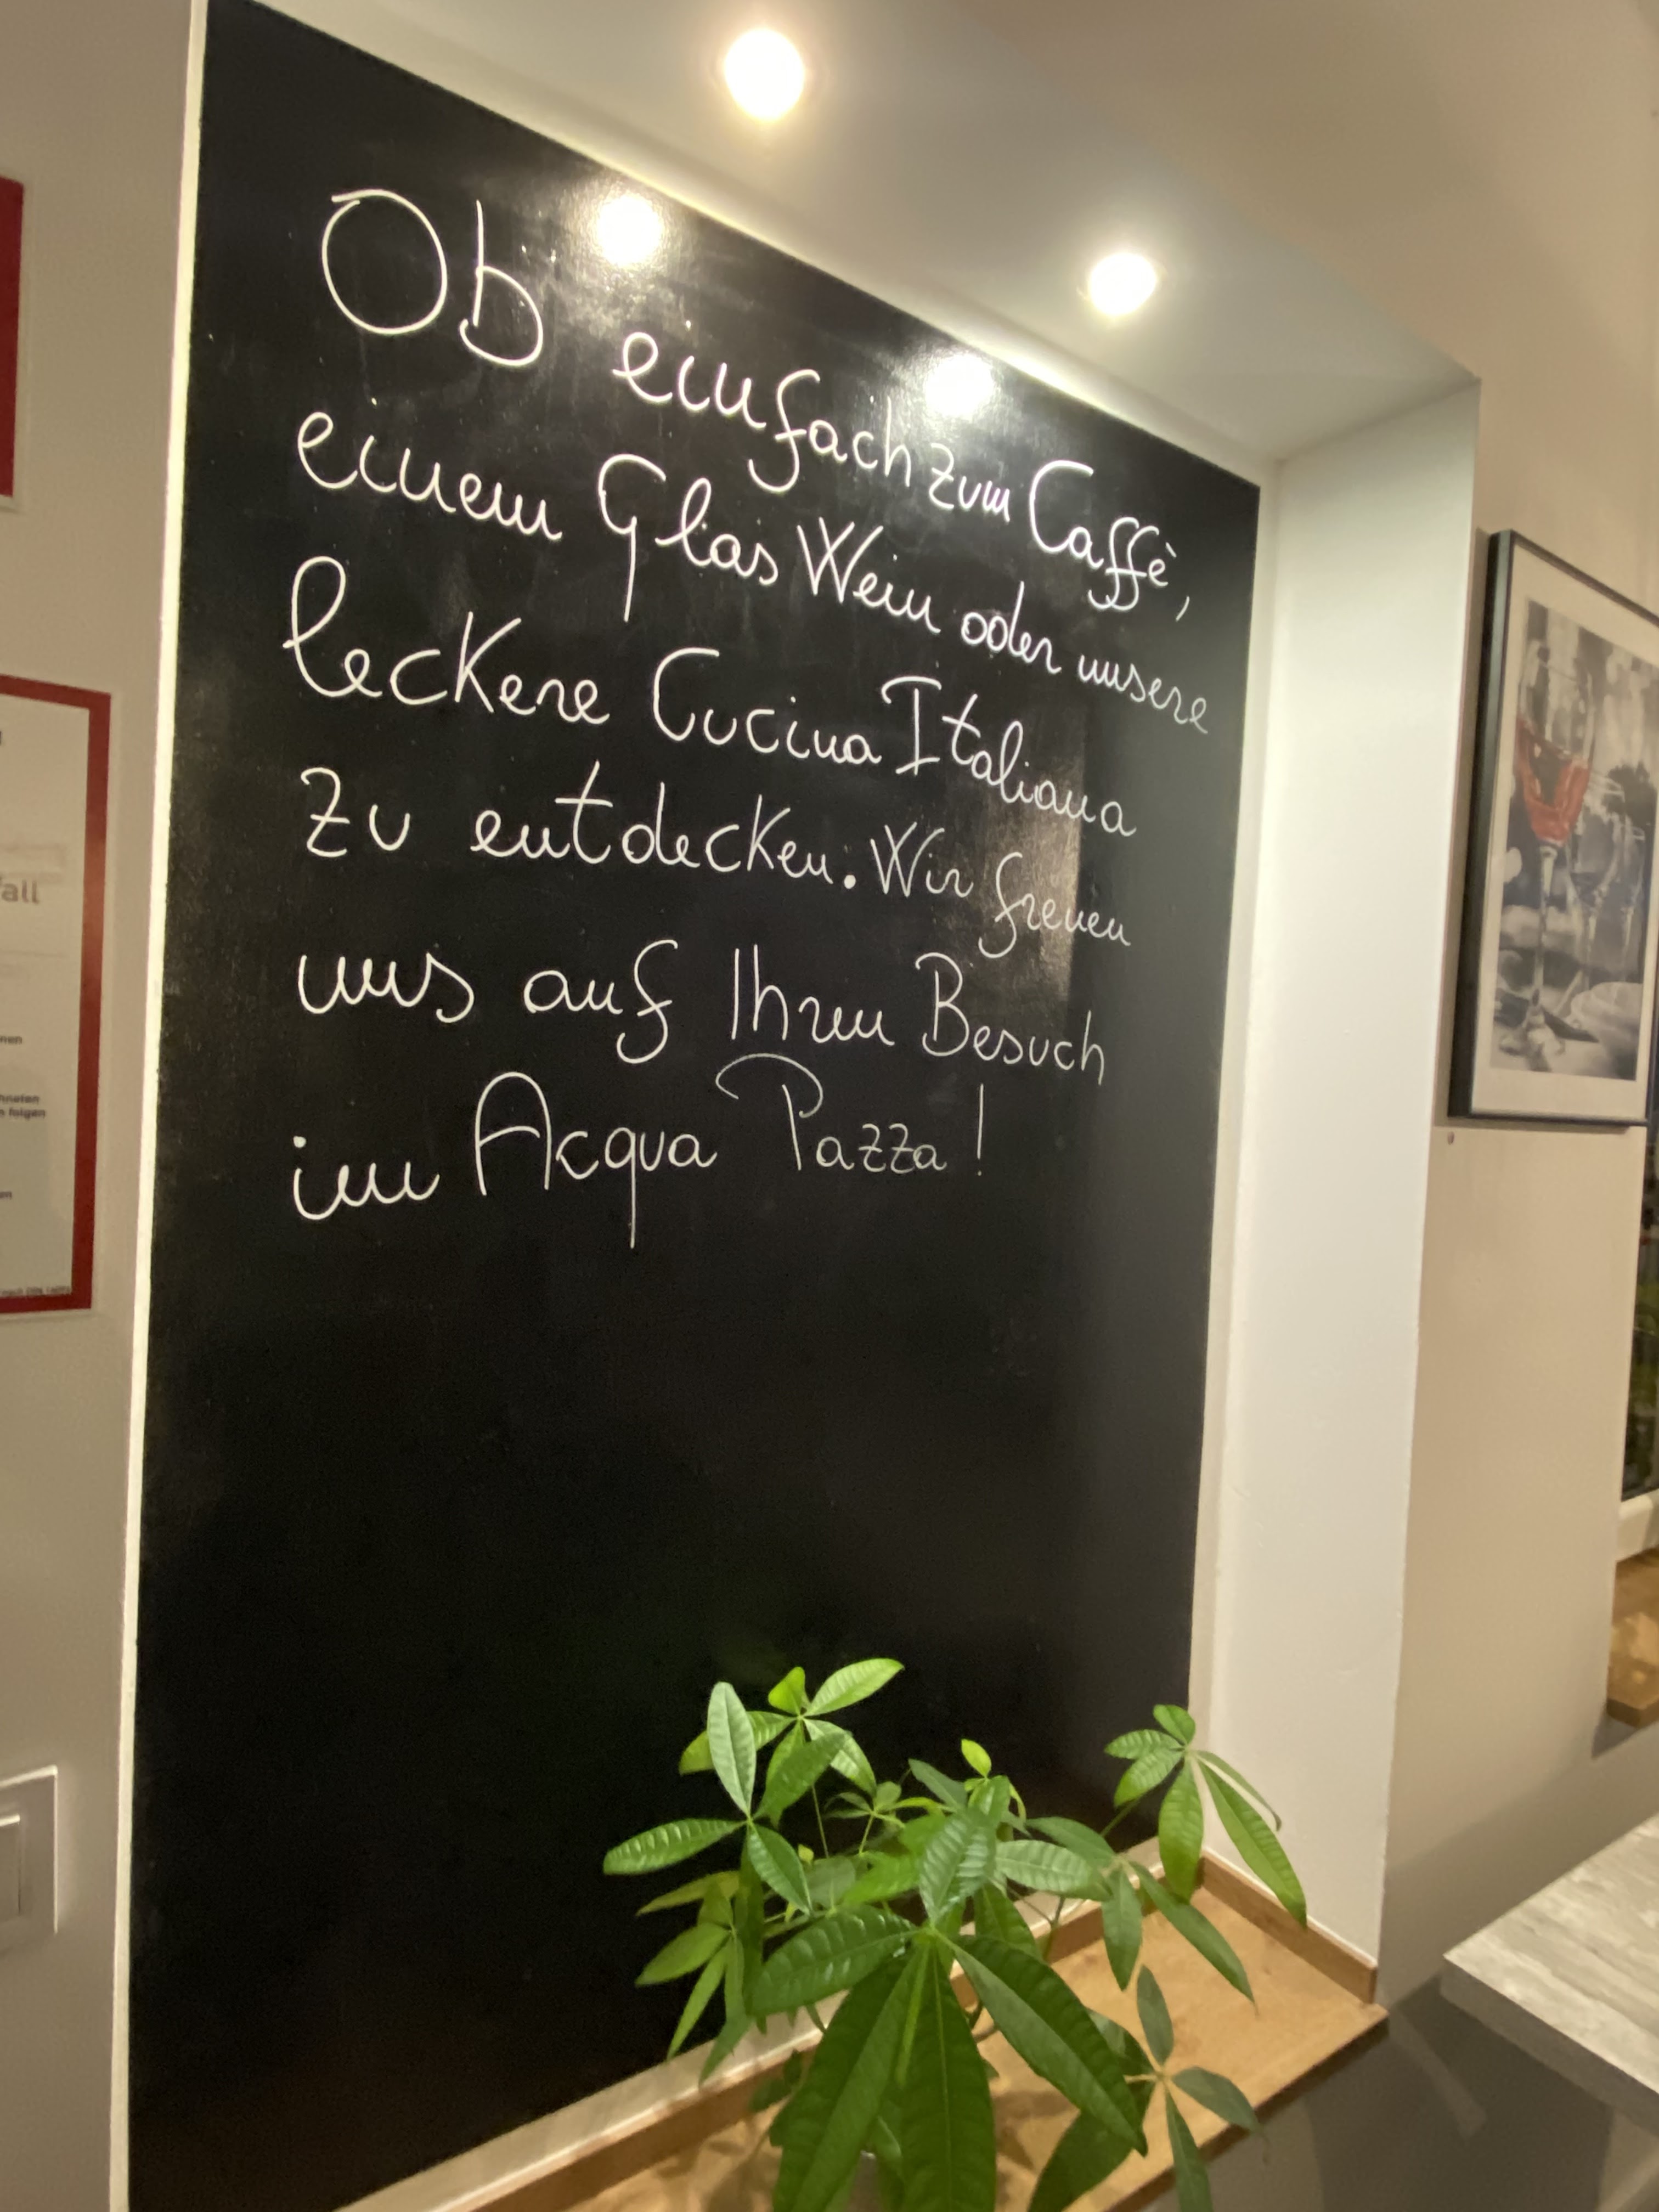 Ob einfach zum Caffè,
einem Glas Wein oder unsere
leckere Cucina Italiana
zu entdecken. Wir freuen
uns auf Ihren Besuch
im Acqua Pazza!
fall
folgen